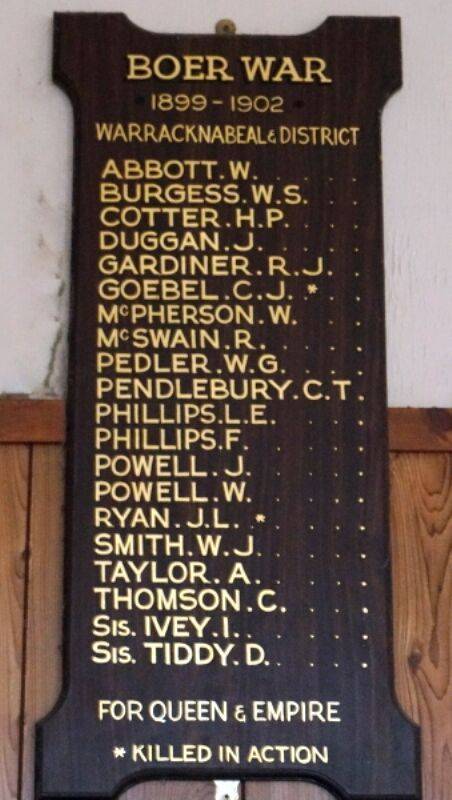 BOER WAR
1899-1902
WARRACKNABEAL & DISTRICT
ABBOTT. W. . . . .
BURGESS. W. S. . .
COTTER. H. P. . . .
DUGGAN. J. . . . .
GARDINER. R. J. . .
GOEBEL. C. J. . * . .
McPHERSON. W. . . .
McSWAIN. R. . . . .
PEDLER. W. G. . . .
PENDLEBURY. C. T.
PHILLIPS. L. E. . . .
PHILLIPS. F. . . . .
POWELL. J. . . . .
POWELL. W. . . . .
RYAN. J. L. . * . . .
SMITH. W. J. . . . .
TAYLOR. A. . . . .
THOMSON. C. . . .
SIS. IVEY. I. . . . .
SIS. TIDDY. D. . . . .
FOR QUEEN & EMPIRE
* KILLED IN ACTION